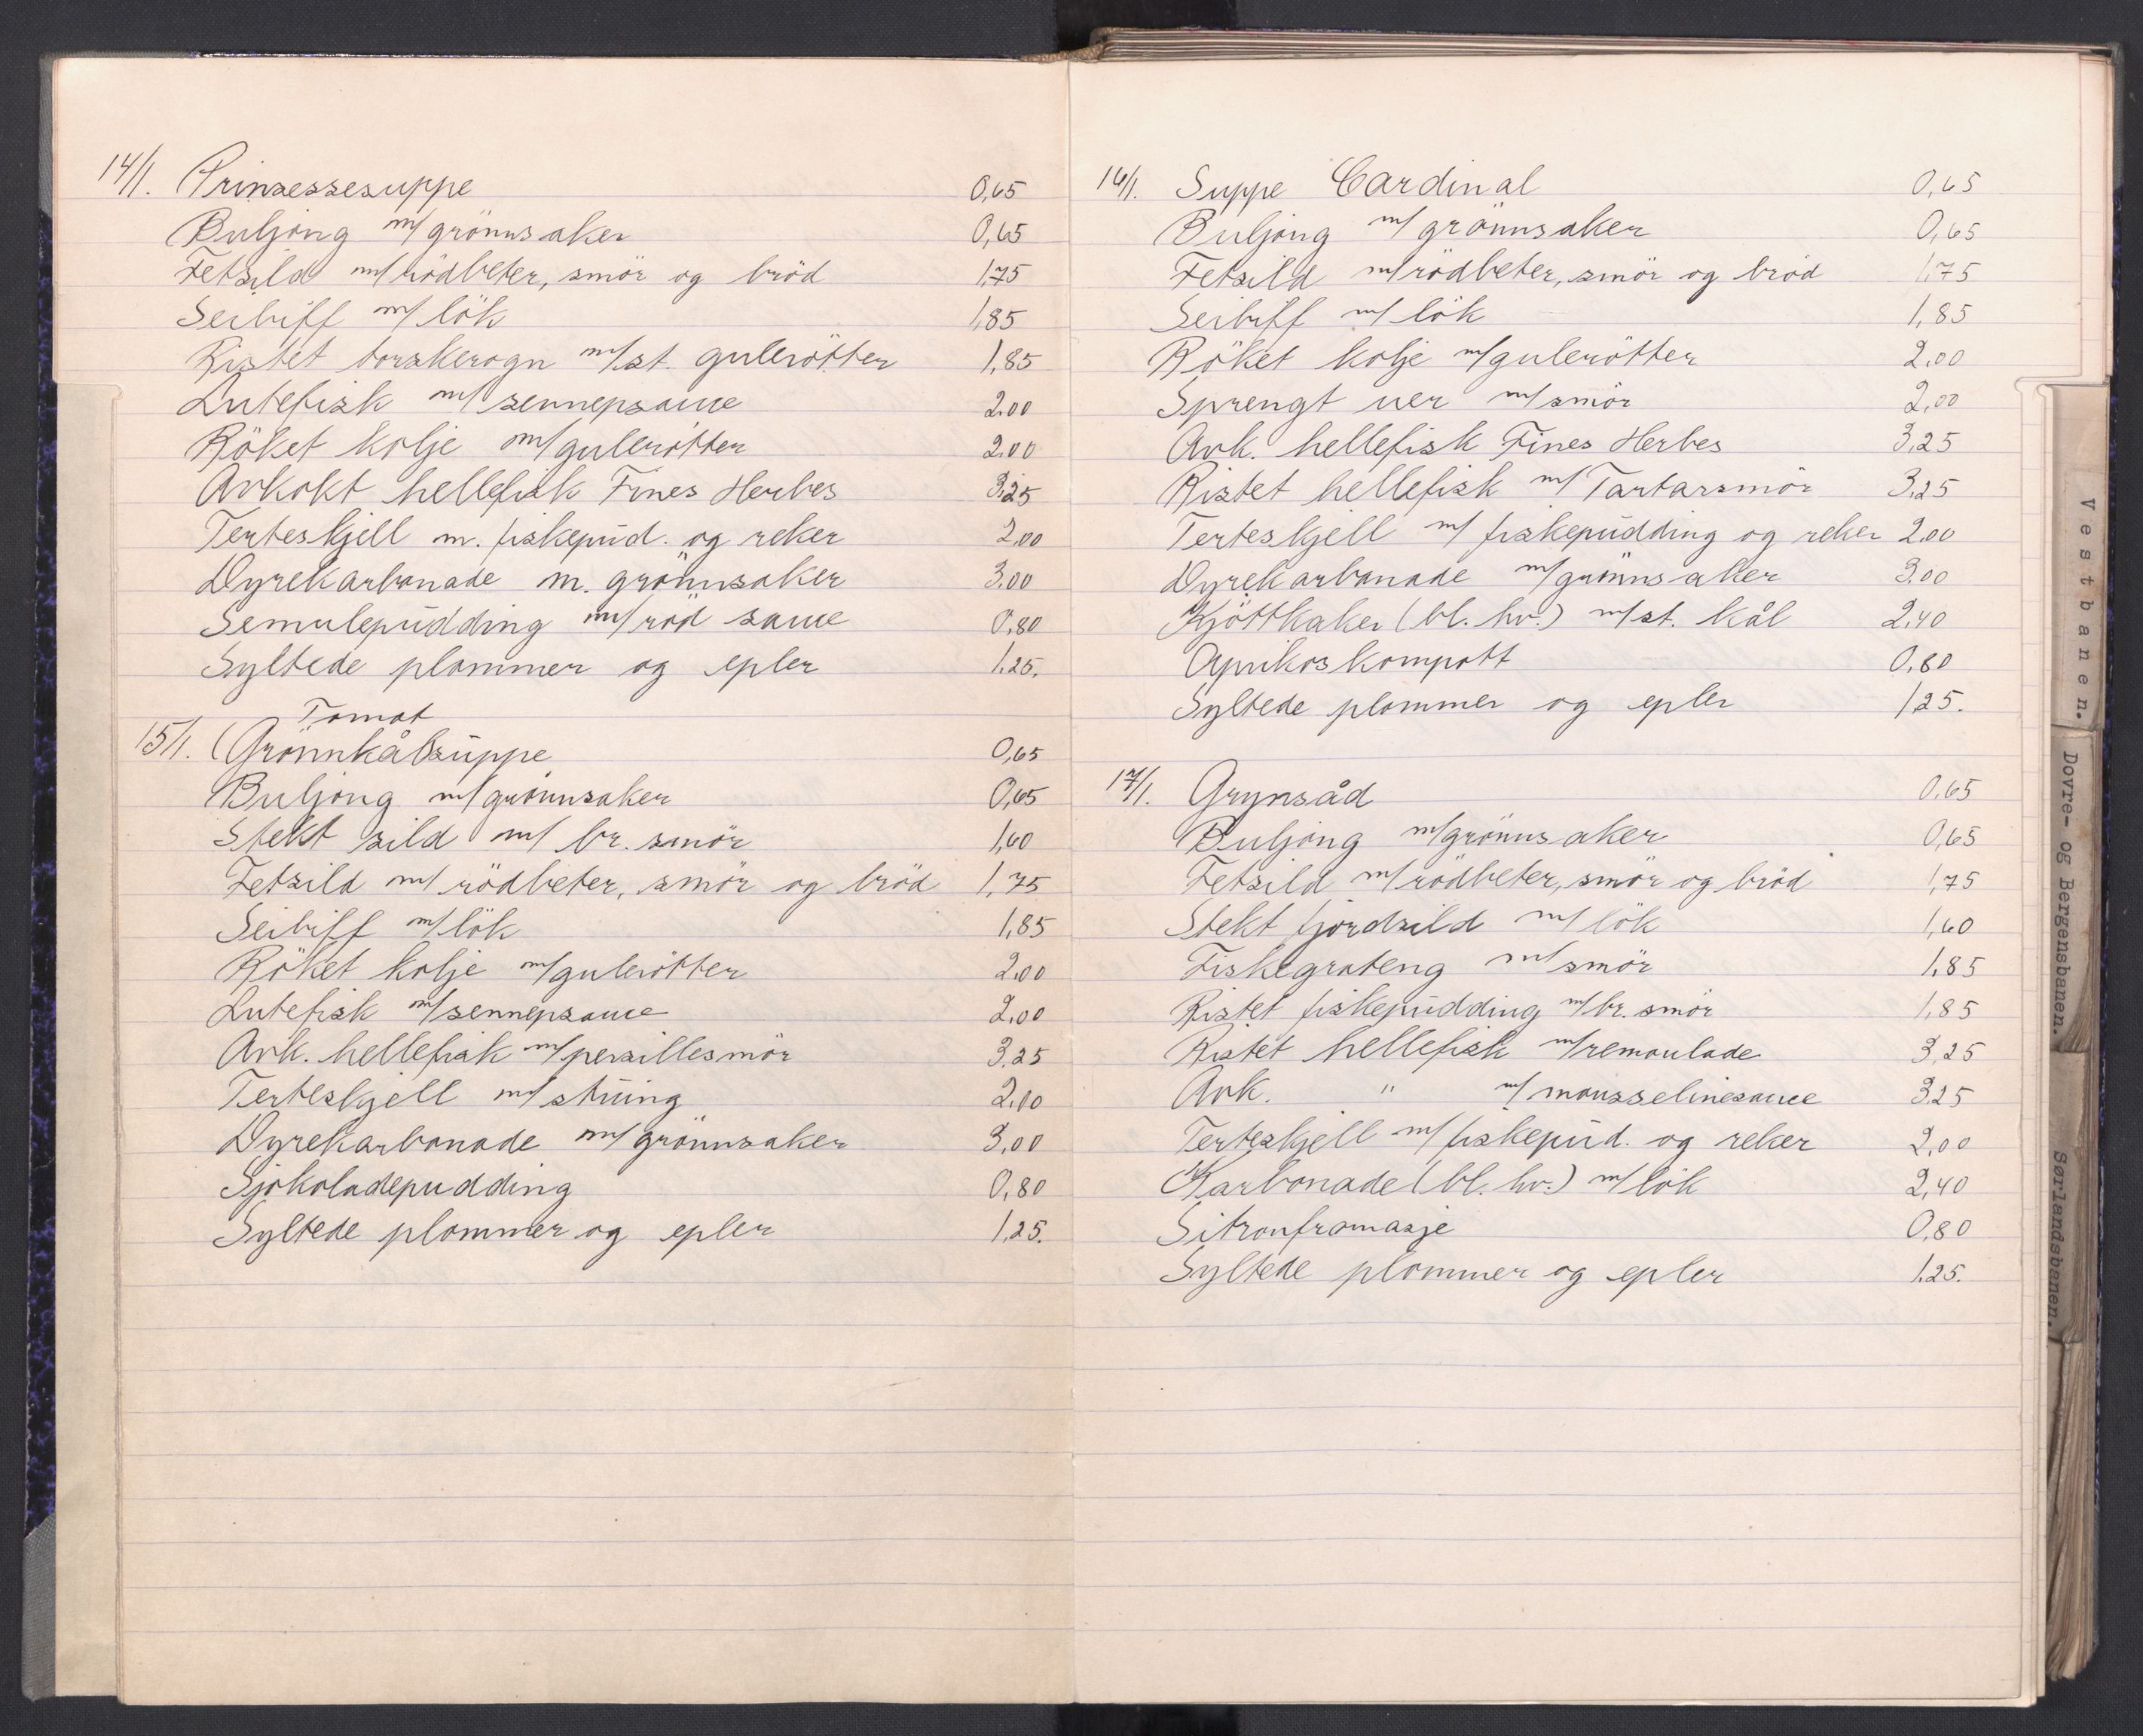 14/1. Prinsessesuppe 0,65
Buljong m/grönnsaker 0,65
Fetsild m/rödbeter, smör og bröd 1,75
Seibiff m/lök 1,85
Ristet torskerogn m/st. gulerötter 1,85
Lutefisk m/sennepsaue 2.00
Röket kolje m/gulerötter 2.00
Avkokt hellefisk Fines Herbes 3,25
Terteskjell m. fiskepud. og reker 2,00
Dyrekarbonade m. grönnsaker 3.00
Semulepudding m/röd saue 0,80
Syltede plommer og epler 1.25.
Tomat
15/1. (Grönnkålsuppe 0,65
Buljong m/grönnsaker 0,65
Stekt sild m/ br. smör 1,60
Fetsild m/rödbeter, smör og bröd 1,75
Seibiff m/lök 1,85
Röket kolje m/gulerötter 2.00
Lutefisk m/sennepsaue 2,00
Avk. hellefisk m/persillesmör 3,25
Terteskjell m/stuing 2.00
Dyrekarbonade m/grönnsaker 3,00
Sjokoladepudding 0,80
Syltede plommer og epler 1,25.
16/1. Suppe Cardinal 0,65
Buljong m/grönnsaker 0,65
Fetsild m/rödbeter, smör og bröd 1,75
Seibiff m/lök 1,85
Röket kolje m/gulerötter 2.00
Sprengt uer m/smör 2,00
Avk. hellefisk Fines Herbes 3,25
Ristet hellefisk m/Tartarsmör 3,25
Terteskjell m/ fiskepudding og reker 2.00
Dyrekarbonade m/grönnsaker 3.00
Kjöttkaker (bl. hv.) m/st. kål 2,40
Aprikoskompott 0,80
Syltede plommer og epler 1,25.
17/1. Grynsåd 0,65
Buljong m/grönnsaker 0,65
Fetsild m/rödbeter, smör og bröd 1,75
Stekt fjordsild m/lök 1,60
Fiskegrateng m/smör 1,85
Ristet fiskepudding m/br. smör 1,85
Ristet hellefisk m/remoulade 3,25
Avk. " m/mousselinesaue 3,25
Terteskjell m/fiskepud. og reker 2,00
Karbonade (bl. hv.) m/lök 2,40
Sitronfromasje 0,80
Syltede plommer og epler 1.25.
Vestbanen.
Dovre- og Bergensbanen.
Sørlandsbanen.